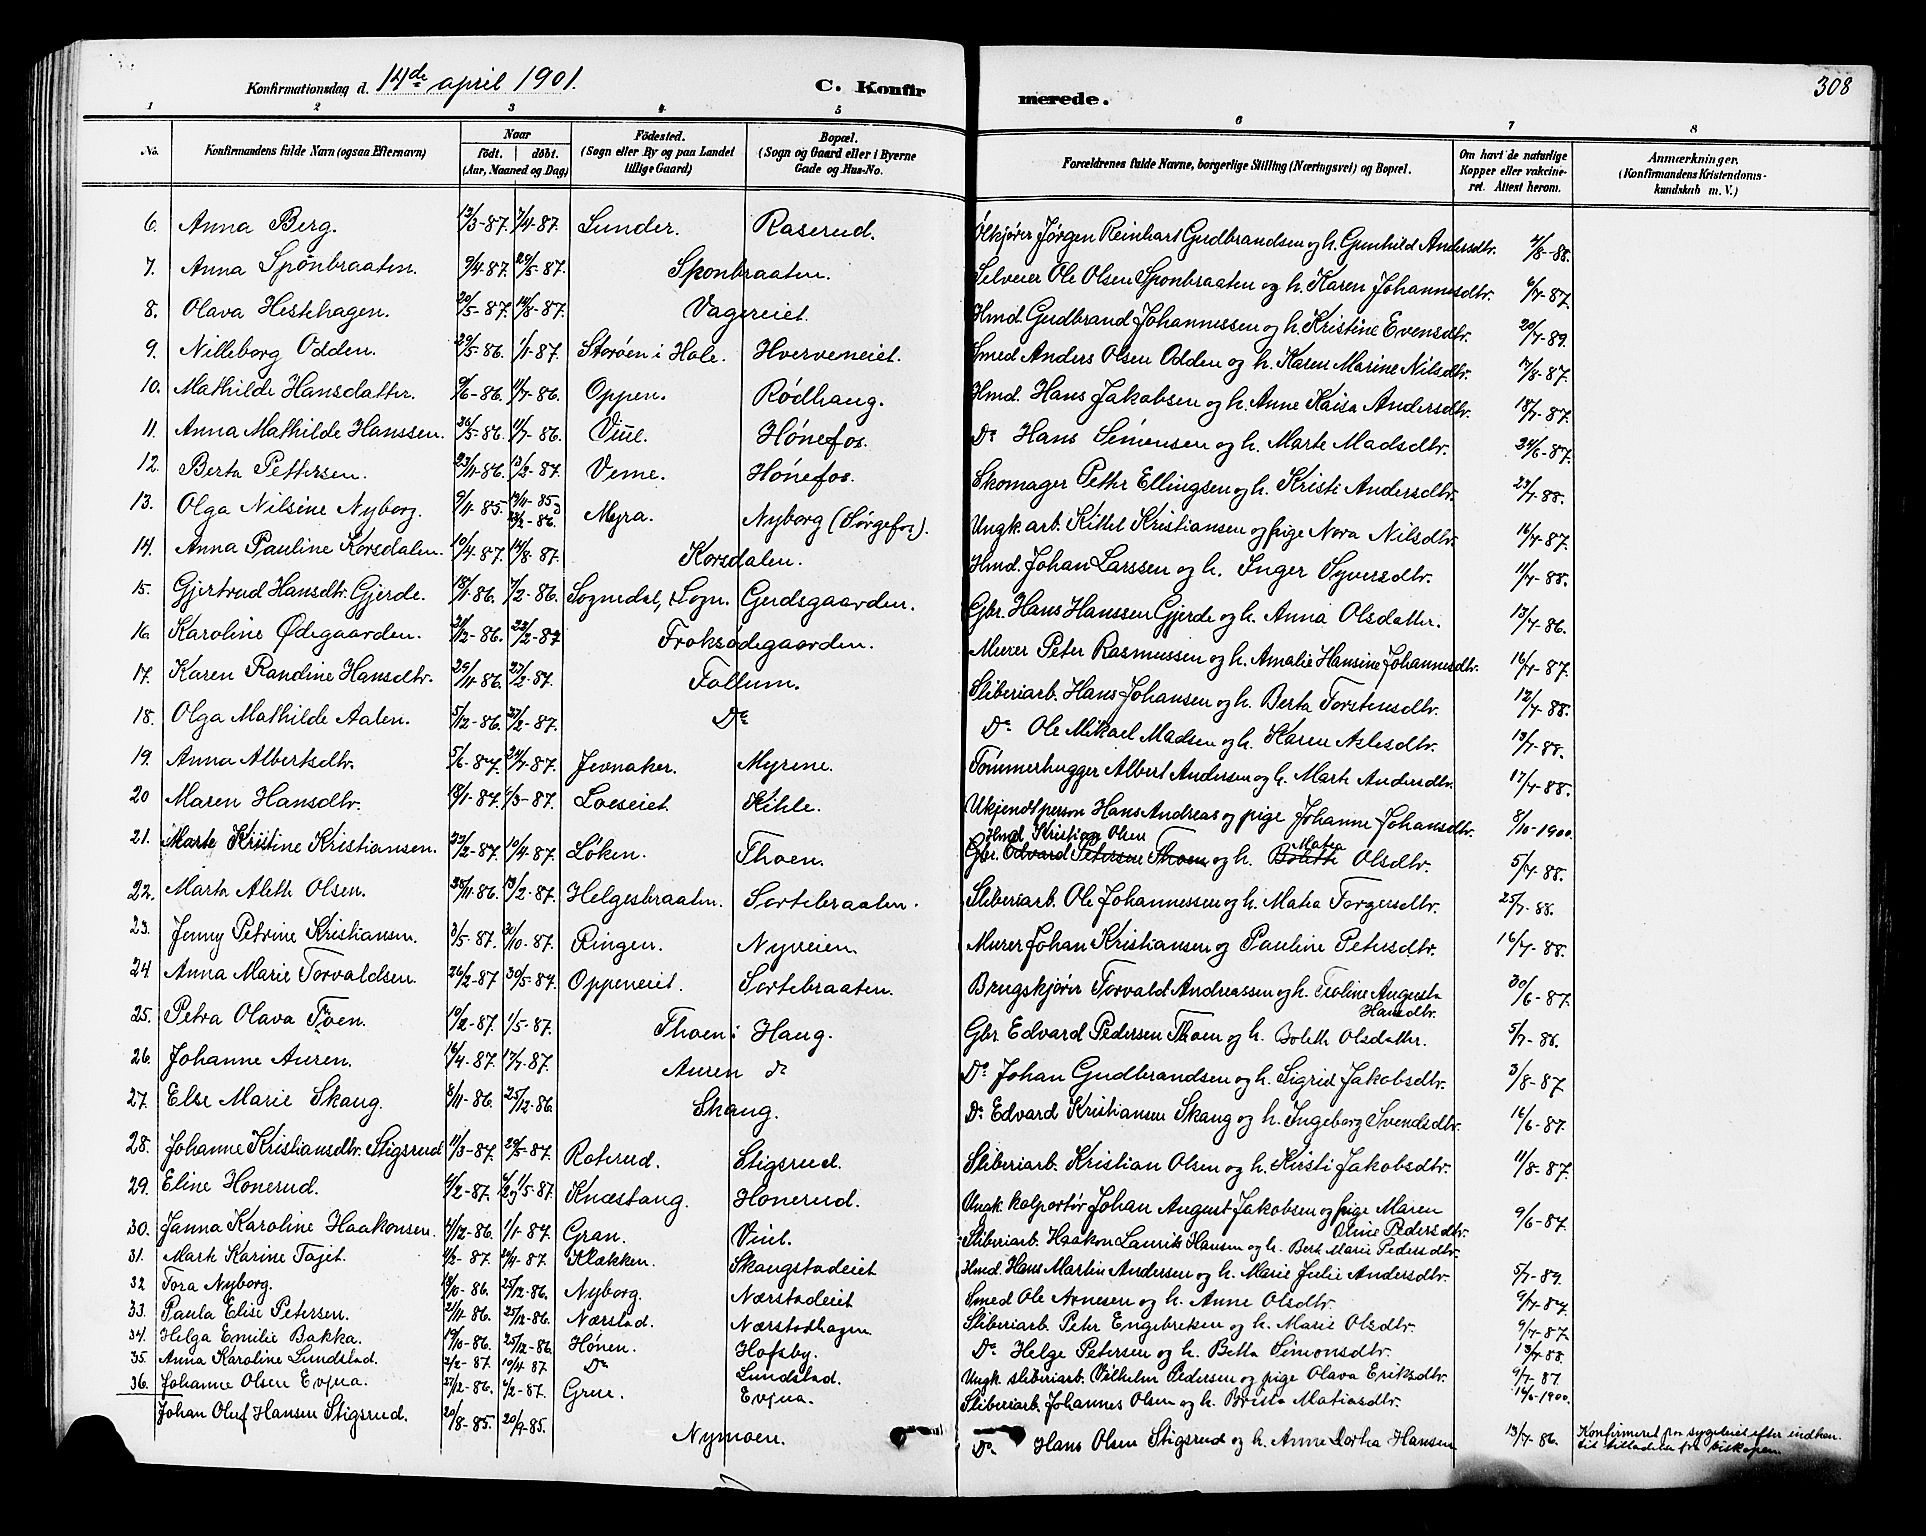 Konfirmationsdag d. 14de april 1901.
C. Konfirmerede.
308
1 2 3 4 5 6 7 8
No.
Konfirmandens fulde Navn (ogsaa Efternavn)
Naar
født. | døbt.
(Aar, Maaned og Dag)
Fødested.
(Sogn eller By og paa Landet
tillige Gaard)
Bopæl.
(Sogn og Gaard eller i Byerne
Gade og Hus-No.
Forældrenes fulde Navne, borgerlige Stilling (Næringsvei) og Bopæl.
Om havt de naturlige
Kopper eller vakcine-
ret. Attest herom.
Anmærkninger.
(Konfirmandens Kristendoms-
kundskab m. V.)
6. Anna Berg. 13/3-87. 7/4-87. Lunder. Raserud. Ølkjører Jørgen Reinhart Gudbrandsen og h. Gunhild Andersdtr. 4/8-88.
7. Anna Sponbraaten. 9/4-87. 29/5-87. Sponbraaten. Selveier Ole Olsen Sponbraaten og h. Karen Johannesdtr. 6/7-87.
8. Olava Hestehagen. 20/5-87. 14/8-87. Vagereiet. Hmd. Gudbrand Johannessen og h. Kristine Evensdtr. 20/7-89.
9. Nilleborg Odden. 29/5-86. 1/1-87. Storøen i Hole. Hverveneiet. Smed Anders Olsen Odden og h. Karen Marine Nilsdtr. 17/8-87.
10. Mathilde Hansdatter. 9/6-86. 11/7-86. Oppen. Rødhaug. Hmd. Hans Jakobsen og h. Anne Kaisa Andersdtr. 18/7-87.
11. Anna Mathilde Hanssen. 26/5-86. 11/7-86. Viul. Hønefos. Do Hans Simensen og h. Marte Madsdtr. 24/6-87.
12. Berta Pettersen. 23/11-86. 13/2-87. Veme. Hønefos. Skomager Petter Ellingsen og h. Kristi Andersdtr. 23/7-88.
13. Olga Nilsine Nyborg. 9/11-85. 13/11-85 Myra. Nyborg (Sørgefos). Ungk. arb. Kittel Kristiansen og pige Nora Nilsdtr. 14/7-87.
14. Anna Pauline Korsdalen. 10/4-87. 14/8-87. Korsdalen. Hmd. Johan Larssen og h. Inger Syversdtr. 11/7-88.
15. Gjertrud Hansdtr. Gjerde. 18/11-86. 7/2-86. Sognedal, Sogn. Gudsgaarden. Gbr. Hans Hanssen Gjerde og h. Anna Olsdatter. 13/7-86.
16. Karoline Ødegaarden. 21/12-86. 22/2-87 Froksødegaarden. Murer Peter Rasmussen og h. Amalie Hansine Johannesdtr. 16/7-87.
17. Karen Randine Hansdtr. 29/11-86. 27/2-87. Follum. Sliberiarb. Hans Johansen og h. Berta Torstensdtr. 12/7-88.
18. Olga Mathilde Aalen. 5/12-86. 27/2-87. Do Do Ole Mikael Madsen og h. Karen Aslesdtr. 13/7-88.
19. Anna Albertsdtr. 5/6-87. 24/7-87. Jevnaker. Myrene. Tømmerhugger Albert Andersen og h. Marte Andersdtr. 17/7-88.
20 Maren Hansdtr. 18/1-87. 6/3-87. Loeseiet. Kihle. Ukjendt person Hans Andreas og pige Johanne Johansdtr. 8/10-1900.
21. Marte Kristine Kristiansen. 22/2-87. 10/4-87. Løken. Thoen. Hmd. Kristian Olsen Matea
Gbr. Edvard Petersen Thoen og h. Bolette Olsdtr. 5/7-88.
22. Marta Alette Olsen. 25/11-86. 13/2-87. Helgesbraaten. Sortebraaten. Sliberiarb. Ole Johannessen og h. Matea Torgersdtr. 25/7-88.
23. Jenny Petrine Kristiansen. 3/5-87. 30/10-87. Ringen. Nyveien Murer Johan Kristiansen og Pauline Petersdtr. 16/7-88.
24 Anna Marie Torvaldsen. 26/2-87 30/5-87. Oppeneiet. Sortebraaten. Brugskjører Torvald Andreassen og h. Troline Augusta
Hansdtr. 30/6-87.
25. Petra Olava Toen. 10/2-87. 1/5-87. Thoen i Haug. Gbr Edvard Pedersen Thoen og h. Bolette Olsdatter. 5/7-88.
26. Johanne Auren. 16/4-87. 17/7-87. Auren do Do Johan Gudbrandsen og h. Sigrid Jakobsdtr. 3/8-87
27. Else Marie Skaug. 8/11-86. 25/12-86. Skaug. Do Edvard Kristiansen Skaug og h. Ingeborg Svendsdtr. 16/6-87.
28. Johanne Kristiansdtr. Stigsrud 11/3-87. 29/5-87. Roterud. Stigsrud. Sliberiarb. Kristian Olsen og h. Kirsti Jakobsdtr. 11/8-87.
29. Eline Honerud. 4/2-87. 1/5-87. Knæstang. Honerud. Ungk. kolportør Johan August Jakobsen og pige Maren
Oline Pedersdtr. 9/6-87
30. Janna Karoline Haakonsen. 4/12-86. 1/1-87. Gran. Viul. Sliberiarb. Haakon Laurits Hansen og h. Berte Marie Pedersdtr.
31. Marte Karine Tajet. 2/2-87. 24/4-87. Klækken. Skaugstadeiet Hmd. Hans Martin Andersen og h. Marie Julie Andersdtr. 5/7-89.
32 Tora Nyborg. 18/10-86. 25/12-86. Nyborg. Nærstadeiet Smed Ole Arnesen og h. Anne Olsdtr. 9/7-87.
33. Paula Elise Petersen. 21/11-86. 25/12-86. Nærstad. Nærstadhagen Sliberiarb. Peter Engebretsen og h. Marie Olsdtr. 9/7-87
34. Helga Emilie Bakka. 19/10-86. 25/12-86 Hønen. Hofsby. Do Helge Petersen og h. Betta Simonsdtr. 13/7-88.
35. Anna Karoline Lundstad. 2/2-87. 10/4-87 Do Lundstad. Ungk. sliberiarb. Vilhelm Pedersen og pige Olava Eriksdtr. 9/7-87
36. Johanne Olsen Evjua. 27/12-86. 6/2-87. Grue. Evjua. Sliberiarb. Johannes Olsen og h. Brista Matiasdtr. 1900.
Johan Oluf Hansen Stigsrud. 20/8-85. 20/9-85. Nymoen. Do. Hans Olsen Stigsrud og h. Anne Dortea Hansen 13/7-86. Konfirmeret paa sygeleiet efter indhen-
tet tilladelse fra biskopen.